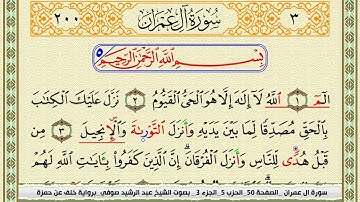 ٣ سُورَةُ آلِ عِمْرَانَ ٢٠٠
بِسْمِ اللَّهِ الرَّحْمَٰنِ الرَّحِيمِ
الٓمٓ ١ اللَّهُ لَآ إِلَٰهَ إِلَّا هُوَ الْحَيُّ الْقَيُّومُ ٢ نَزَّلَ عَلَيْكَ الْكِتَٰبَ
بِالْحَقِّ مُصَدِّقًا لِّمَا بَيْنَ يَدَيْهِ وَأَنزَلَ التَّوْرَىٰةَ وَالْإِنجِيلَ ٣ مِن
قَبْلُ هُدًى لِّلنَّاسِ وَأَنزَلَ الْفُرْقَانَ إِنَّ الَّذِينَ كَفَرُوا بِـَٔايَٰتِ اللَّهِ لَهُمْ
سورة آل عمران _الصفحة 50_الحزب 5_الجزء 3_ بصوت الشيخ عبد الرشيد صوفي _برواية خلف عن حمزة